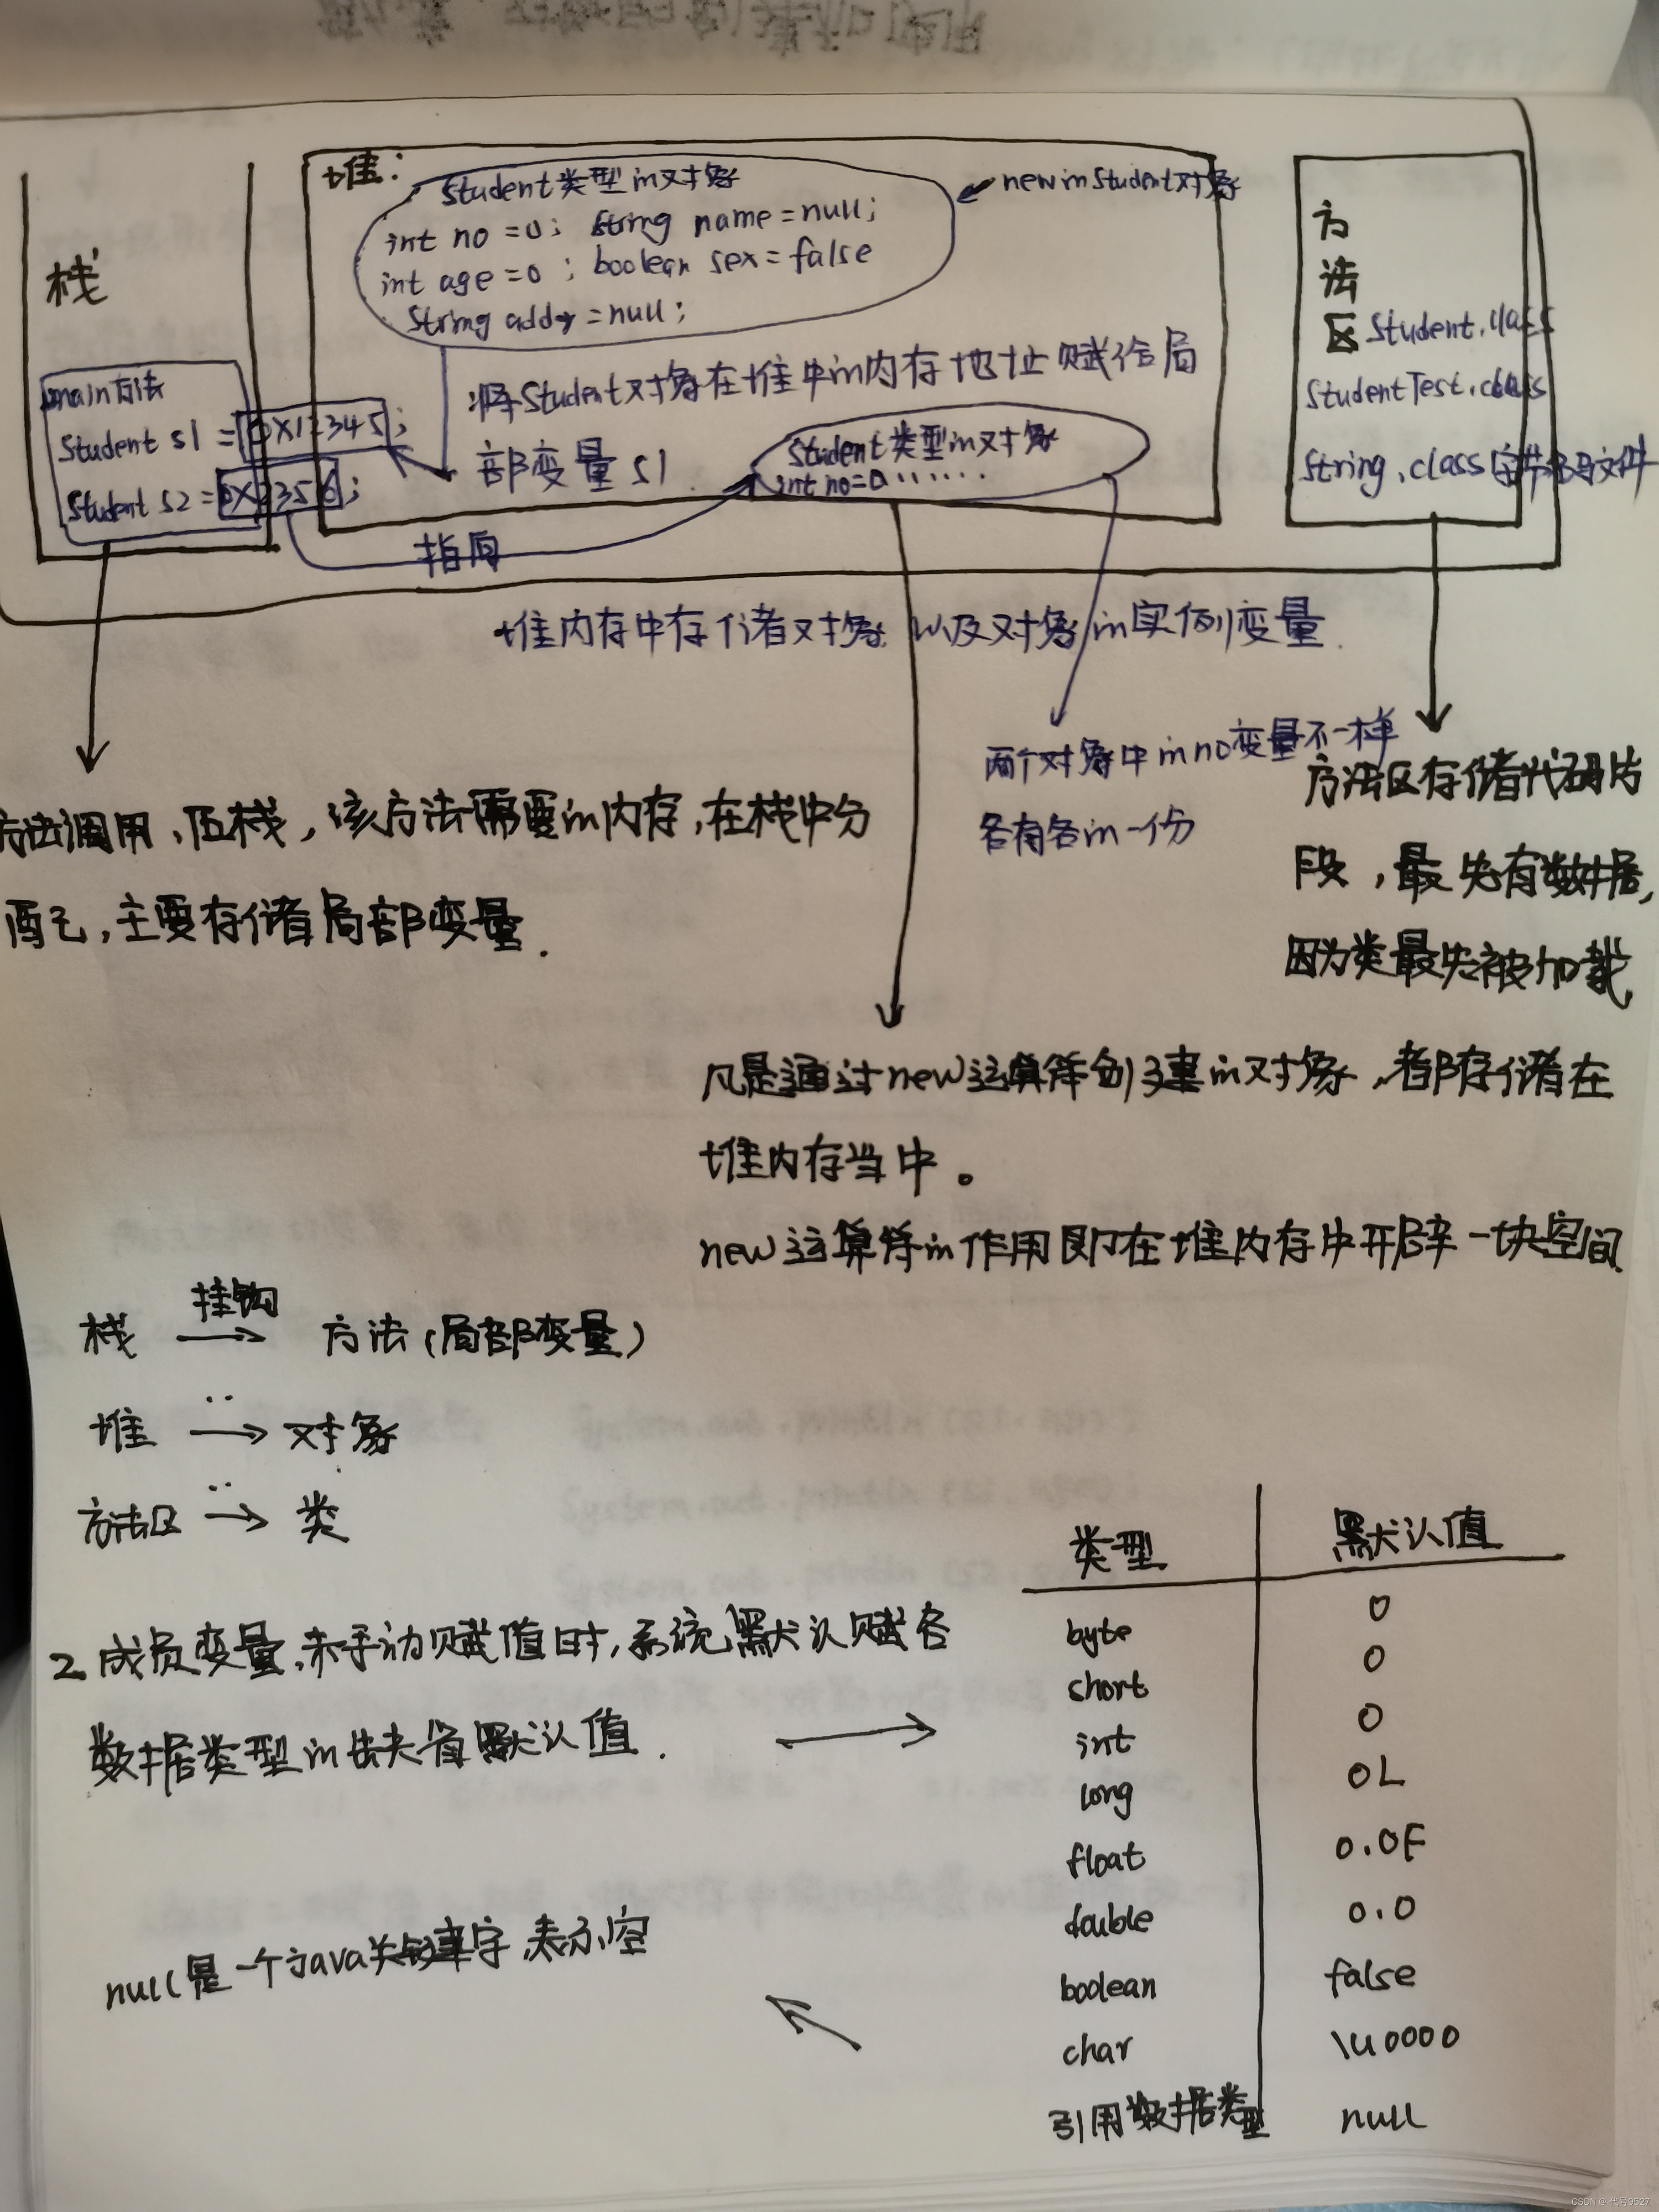 堆:
Student类型in对象
new in Student对象
int no = 0; String name = null;
int age = 0; boolean sex = false
String addr = null;
栈
main方法
Student s1 = 0X12345;
Student s2 =
将Student对象在堆中in内存地址赋给局
部变量s1.
Student类型in对象
int no=0......
指向
方
法
区 Student.class
StudentTest.class
String.class字节码文件
堆内存中存储者对象以及对象in实例变量.
两个对象中in no变量不一样
各有各in一份
方法调用,压栈,该方法需要in内存,在栈中分
配,主要存储者局部变量.
方法区存储代码片
段,最先有数据,
因为类最先被加载
凡是通过new运算符创建in对象,都存储在
堆内存当中。
new运算符in作用即在堆内存中开辟一块空间.
栈 挂钩→ 方法(局部变量)
堆 ‥→ 对象
方法区 ‥→ 类
2.成员变量,未手动赋值时,系统默认赋各
数据类型in缺省默认值. →
类型 默认值
byte 0
short 0
int 0
long 0L
float 0.0F
double 0.0
boolean false
char \u0000
引用数据类型 null
null是一个java关键字,表示空
CSDN @代号9527